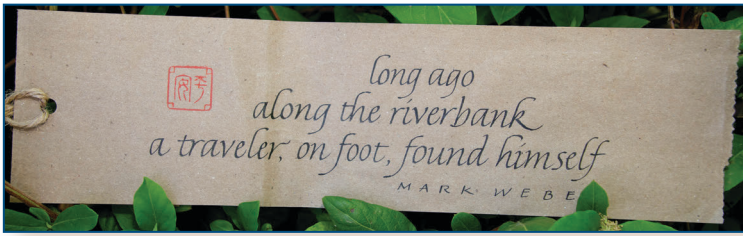 long ago
along the riverbank
a traveler, on foot, found himself
MARK WEBE